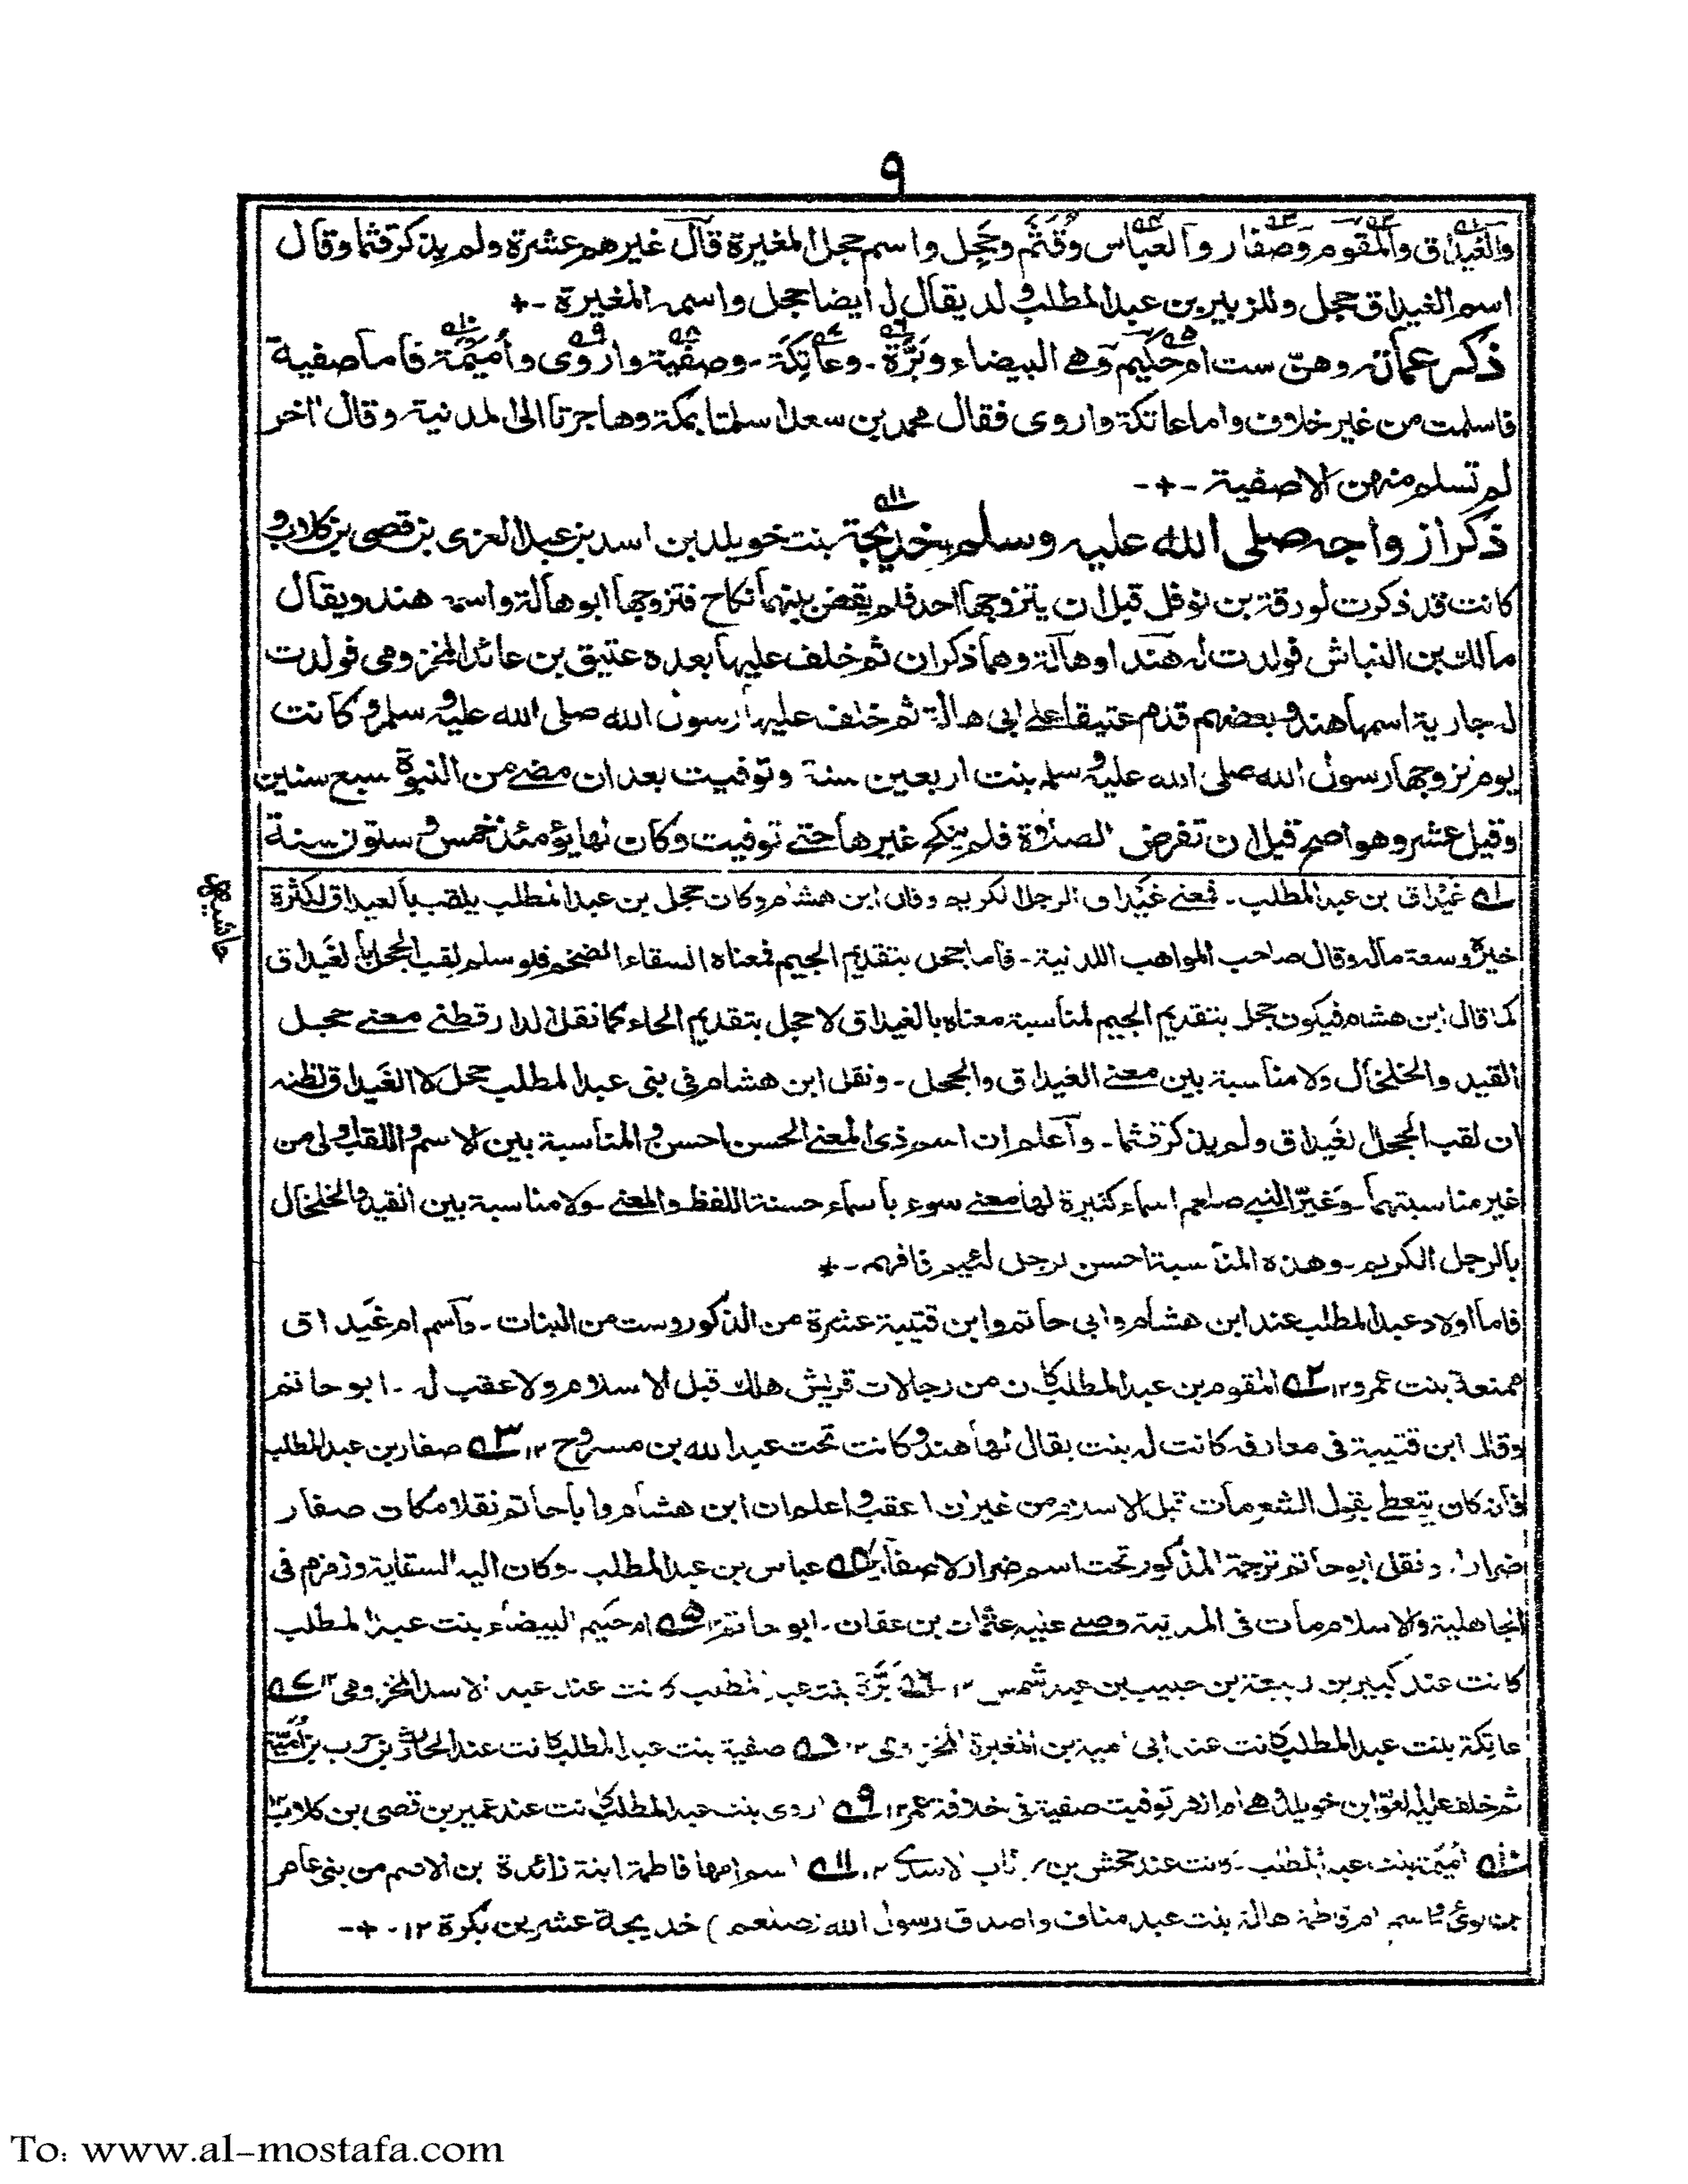 ٩
والغيداق والمقوم وصفار والعباس وقُثَم وحَجِل واسم حجل المغيرة قال غيرهم عشرة ولم يذكر قثما وقال
اسم الغيداق حجل وللزبير بن عبد المطلب ولد يقال له ايضا حجل واسمه المغيرة -+
ذكر عماته وهن ست ام حكيم وهي البيضاء وبَرَّة - وعاتِكَة - وصفية واروى وأميمة فاما صفية
فاسلمت من غير خلاف واما عاتكة واروى فقال محمد بن سعد اسلمتا بمكة وهاجرتا الى المدنية وقال اخر
لم تسلم منهن الا صفية -+-
ذكر ازواجه صلى الله عليه وسلم خديجة بنت خويلد بن اسد بن عبد العزى بن قصى بن كلاب و
كانت قد ذكرت لورقة بن نوفل قبل ان يتزوجها احد فلم يقض بينهما نكاح فتزوجها ابو هالة واسمه هند ويقال
مالك بن النباش فولدت له هندا وهالة وهما ذكران ثم خلف عليها بعده عتيق بن عائذ المخزومى فولدت
له جارية اسمها هند وبعضهم قدم عتيقا على ابى هالة ثم خلف عليها رسول الله صلى الله عليه وسلم وكانت
يوم تزوجها رسول الله صلى الله عليه وسلم بنت اربعين سنة وتوفيت بعد ان مضى من النبوة سبع سنين
وقيل عشر وهو اصح قبل ان تفرض الصلاة فلم ينكح غيرها حتى توفيت وكان لها يؤمئذ خمس وستون سنة
حاشيه
١ غَيْداق بن عبد المطلب - فمعنى غَيْداق الرجل الكريم وقال ابن هشام وكان حجل بن عبد المطلب يلقب بالغيداق لكثرة
خيره وسعة ماله وقال صاحب المواهب اللدنية - فاما جحل بتقديم الجيم فمعناه السقاء الضخم فلو سلم لقب الجحل بالغيداق
كما قال ابن هشام فيكون جحل بتقديم الجيم لمناسبة معناه بالغيداق لا حجل بتقديم الحاء كما نقل الدارقطنى معنى حجل
القيد والخلخال ولا مناسبة بين معنى الغيداق والحجل - ونقل ابن هشام فى بنى عبد المطلب جحل لا الغيداق لظنه
ان لقب الجحل لغيداق ولم يذكر قثما - واعلم ان اسم ذى المعنى الحسن احسن والمناسبة بين الاسم واللقب اولى من
غير مناسبتهما - وغيّر النبى صلعم اسماء كثيرة لها معنى سوء باسماء حسنة اللفظ والمعنى - ولا مناسبة بين القيد والخلخال
بالرجل الكريم - وهذه المناسبة احسن لرجل لئيم فافهم -+
فاما اولاد عبد المطلب عند ابن هشام وابى حاتم وابن قتيبة عشرة من الذكور وست من البنات - واسم ام غيداق
ممنعة بنت عمرو ١٢ ٢ المقوم بن عبد المطلب كان من رجالات قريش هلك قبل الاسلام ولا عقب له - ابو حاتم
وقال ابن قتيبة فى معارفه كانت له بنت يقال لها هند وكانت تحت عبد الله بن مسروح ١٢ ٣ صفار بن عبد المطلب
فانه كان يتعطى بقول الشعر مات قبل الاسلام من غير ان اعقب واعلم ان ابن هشام وابا حاتم نقلا مكان صفار
ضرارا. ونقل ابو حاتم ترجمة المذكور تحت اسم ضرار لا صفار ٤ عباس بن عبد المطلب - وكان اليه السقاية وزمزم فى
الجاهلية والاسلام مات فى المدينة وصلى عليه عثمان بن عفان - ابو حاتم ١٢ ٥ ام حكيم البيضاء بنت عبد المطلب
كانت عند كبير بن ربيعة بن حبيب بن عبد شمس ١٢ ٦ بَرَّة بنت عبد المطلب كانت عند عبد الاسد المخزومى ١٢ ٧
عاتكة بنت عبد المطلب كانت عند ابى امية بن المغيرة المخزومى ١٢ ٨ صفية بنت عبد المطلب كانت عند الحارث بن حرب بن أمية
ثم خلف عليها العوام ابن خويلد وهى ام الزهر توفيت صفية فى خلافة عمر ١٢ ٩ اروى بنت عبد المطلب كانت عند عمير بن قصى بن كلاب ١٢
١٠ أميمة بنت عبد المطلب - كانت عند جحش بن رئاب الاسدى ١٢ ١١ اسم امها فاطمة ابنة زائدة بن الاصم من بنى عامر
بن لوئ واسم ام فاطمة هالة بنت عبد مناف واصدق رسول الله (صلعم) خديجة عشرين بكرة ١٢ -+-
To: www.al-mostafa.com